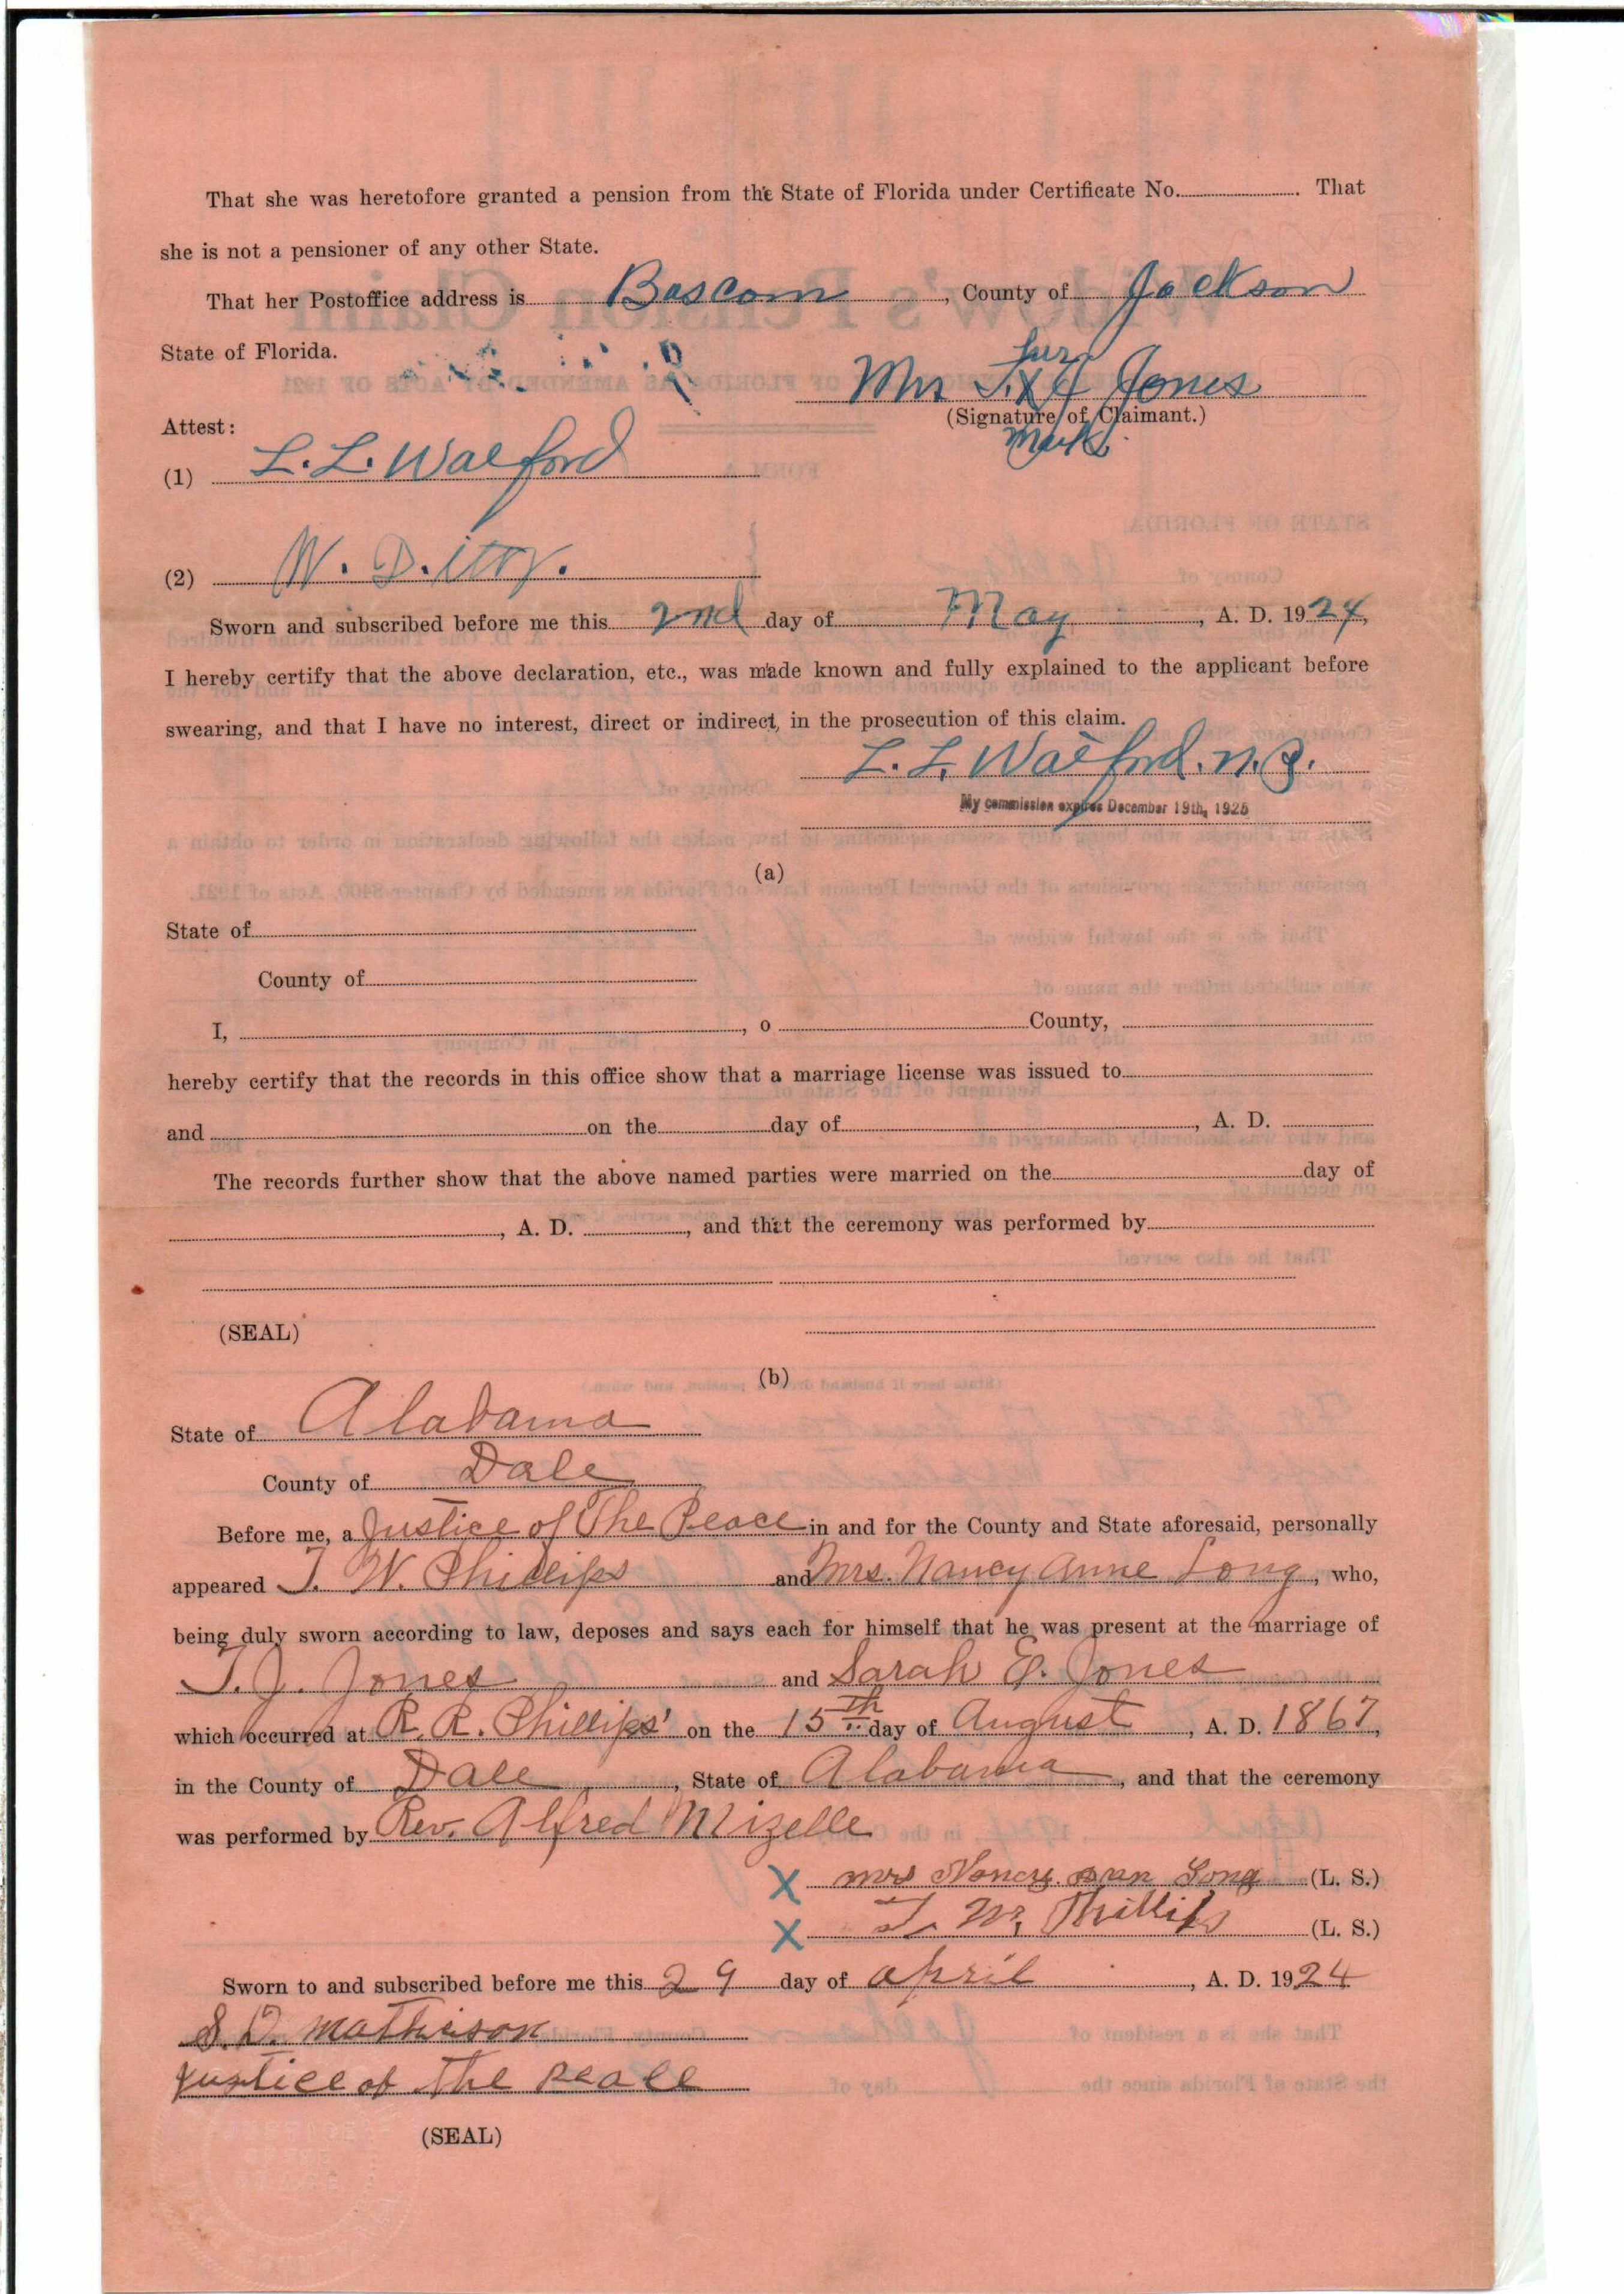 That she was heretofore granted a pension from the State of Florida under Certificate No. . That
she is not a pensioner of any other State.
That her Postoffice address is Bascom , County of Jackson
State of Florida.
her
Mrs T. x J Jones
(Signature of Claimant.)
mark
Attest:
(1) L. L. Walford
(2) W. D.
Sworn and subscribed before me this 2nd day of May , A. D. 1924,
I hereby certify that the above declaration, etc., was made known and fully explained to the applicant before
swearing, and that I have no interest, direct or indirect, in the prosecution of this claim.
L. L. Walford. N. P.
My commission expires December 19th, 1925
(a)
State of
County of
I, , o County,
hereby certify that the records in this office show that a marriage license was issued to
and on the day of , A. D.
The records further show that the above named parties were married on the day of
, A. D. , and that the ceremony was performed by
(SEAL)
(b)
State of Alabama
County of Dale
Before me, a Justice of The Peace in and for the County and State aforesaid, personally
appeared T. W. Phillips and Mrs. Nancy Anne Long , who,
being duly sworn according to law, deposes and says each for himself that he was present at the marriage of
T. J. Jones and Sarah E. Jones
which occurred at R. R. Phillips' on the 15th day of August , A. D. 1867,
in the County of Dale , State of Alabama , and that the ceremony
was performed by Rev. Alfred Mizelle
X mrs Nancy ann Long (L. S.)
X T. W. Phillips (L. S.)
Sworn to and subscribed before me this 29 day of april , A. D. 1924
S. D. Mathison
Justice of the peace
(SEAL)